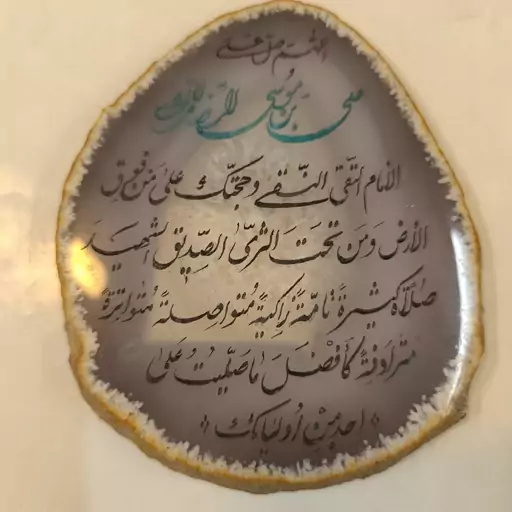 اللهم صل على
علی بن موسی الرضا المرتضی
الامام التقی النقی وحجتک علی من فوق
الارض ومن تحت الثری الصدیق الشهید
صلاة کثیرة تامة زاکیة متواصلة متواترة
مترادفة کافضل ما صلیت علی
احد من اولیائک